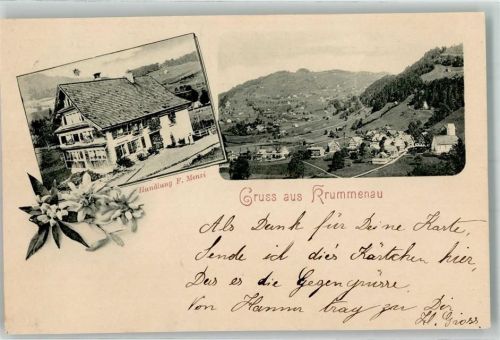 Handlung F. Menzi
Gruss aus Krummenau
Als Dank für Deine Karte,
Sende ich dies Kärtchen hier,
Das es die Gegengrüsse
Von Hannen trag zu Dir
Gross